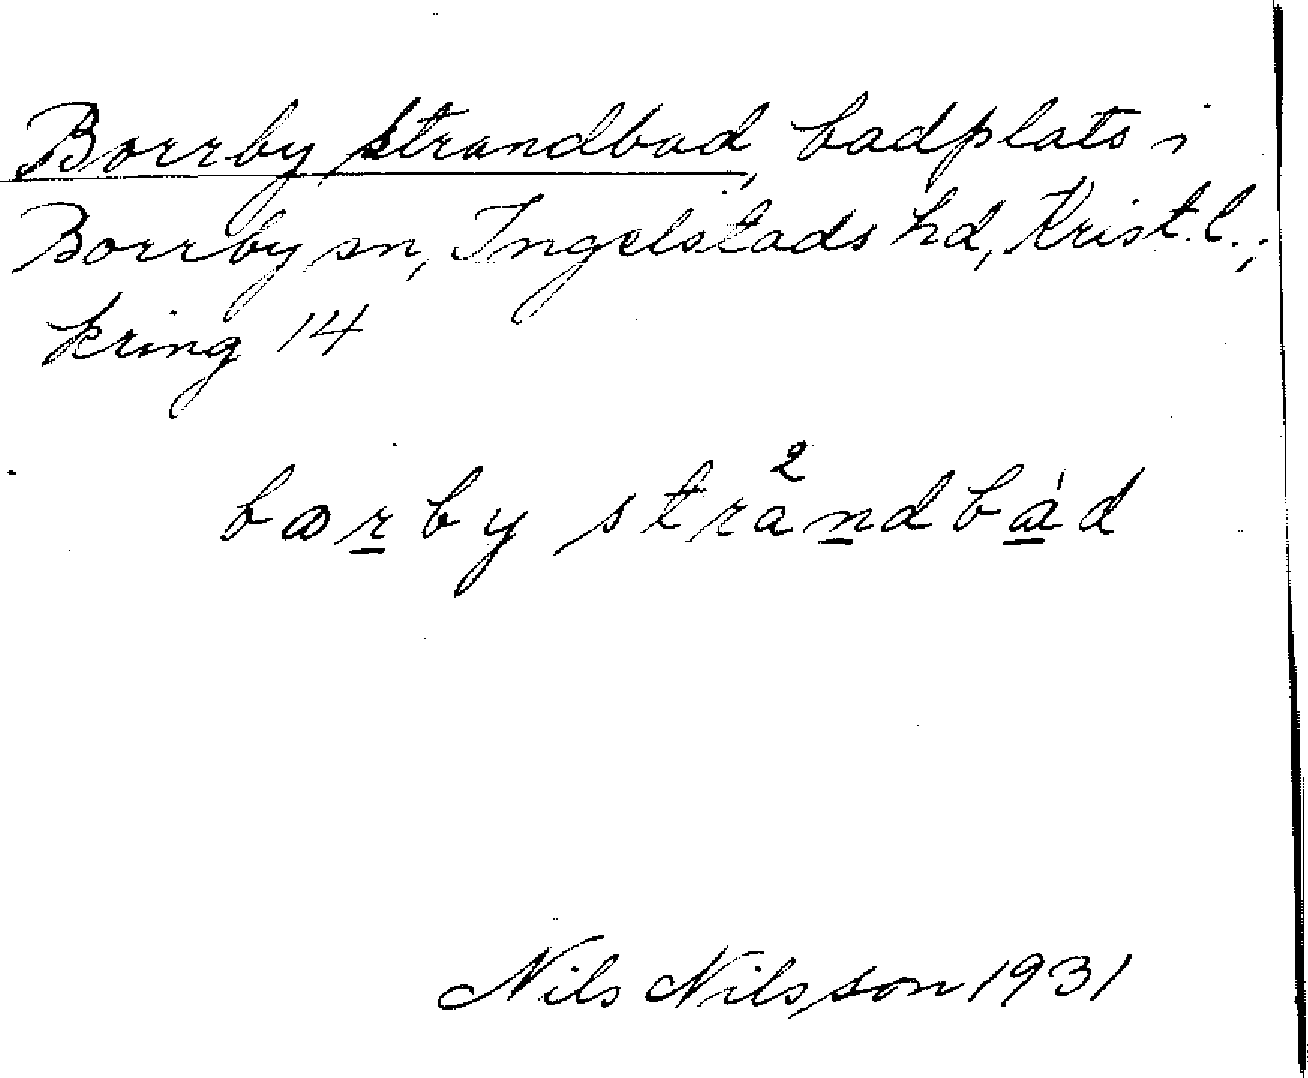 Borrby strandbad, badplats i
Borrby sn, Ingelstads hd, Krist. l.;
kring 14
2
bɷrby strandbád
Nils Nilsson 1931